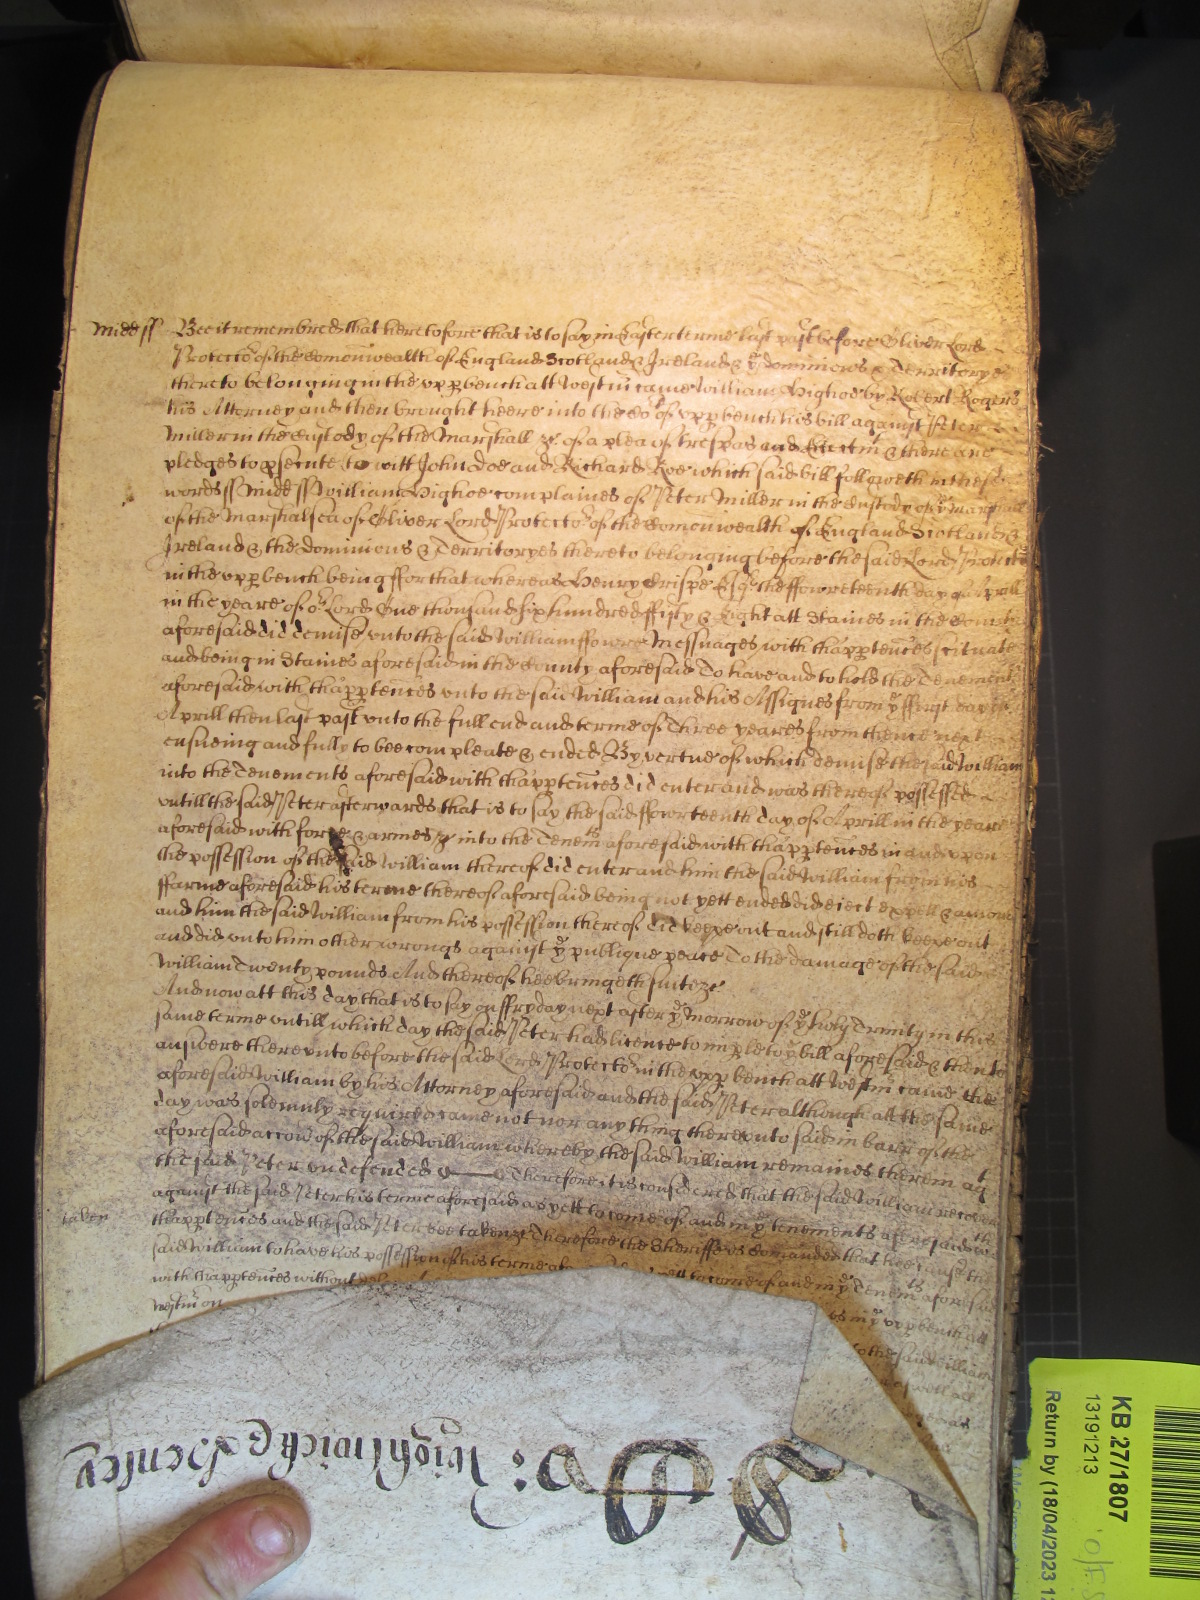 Midd ss Bee it remembred that heretofore that is to say in Easter terme last past before Oliver Lord
Protector of the Comonwealth of England Scotland & Ireland & ye Dominions & Territoryes
thereto belonging in the upp bench att Westm came William Highoe by Robert Rogers
his Attorney and then brought heere into the Cot of upp bench his bill against Peter
Miller in the Custody of the Marshall &c of a plea of trespas and Eiectm & there are
pledges to psecute to witt John Doe and Richard Roe which said bill followeth in these
words ss Midd ss William Highoe complaines of Peter Miller in the Custody of ye Marshall
of the Marshalsea of Oliver Lord Protector of the Comonwealth of England Scotland &
Ireland & the Dominions & Territoryes thereto belonging before the said Lord Protector
in the upp bench being ffor that whereas Henry Crispe Esqr the ffowerteenth day of Aprill
in the yeare of or Lord One thousand six hundred ffifty & Eight att Staines in the County
aforesaid did demise unto the said William ffowre Messuages with thapptences scituate
and being in Staines aforesaid in the County aforesaid To have and to hold the Tenements
aforesaid with thapptences unto the said William and his Assignes from ye ffirst day of
Aprill then last past unto the full end and terme of Three yeares from thence next
ensueing and fully to bee compleate & ended By vertue of which demise the said William
into the Tenements aforesaid with thapptences did enter and was thereof possessed
untill the said Peter afterwards that is to say the said ffowerteenth day of Aprill in the yeare
aforesaid with force & armes &c into the Tenemts aforesaid with thapptences in and upon
the possession of the said William thereof did enter and him the said William from his
ffarme aforesaid his terme thereof aforesaid being not yett ended did eject expell & amove
and him the said William from his possession thereof did keepe out and still doth keepe out
and did unto him other wrongs against ye publique peace To the damage of the said
William Twenty pounds And thereof hee bringeth suite &c
And now att this day that is to say on ffryday next after ye Morrow of ye holy Trinity in this
same terme untill which day the said Peter had licence to imple to ye bill aforesaid & then to
answere thereunto before the said Lord Protector in the upp bench att Westm came the
aforesaid William by his Attorney aforesaid and the said Peter although att the same
day was solemnly required came not nor any thing thereunto said in barr of the
aforesaid accon of the said William whereby the said William remaines therein agt
the said Peter undefended Therefore it is considered that the said William recover
against the said Peter his terme aforesaid as yett to come of and in ye tenements aforesaid wth
taken thapptences and the said Peter bee taken &c Therefore the Sheriffe is Comanded that hee cause the
said William to have his possession of his terme yett to come of and in ye Tenemts aforesaid
with thapptences without
Westm on in ye upp bench att
to the said William
Wightwicke & Henley
KB 27/1807
13191213
Return by (18/04/2023